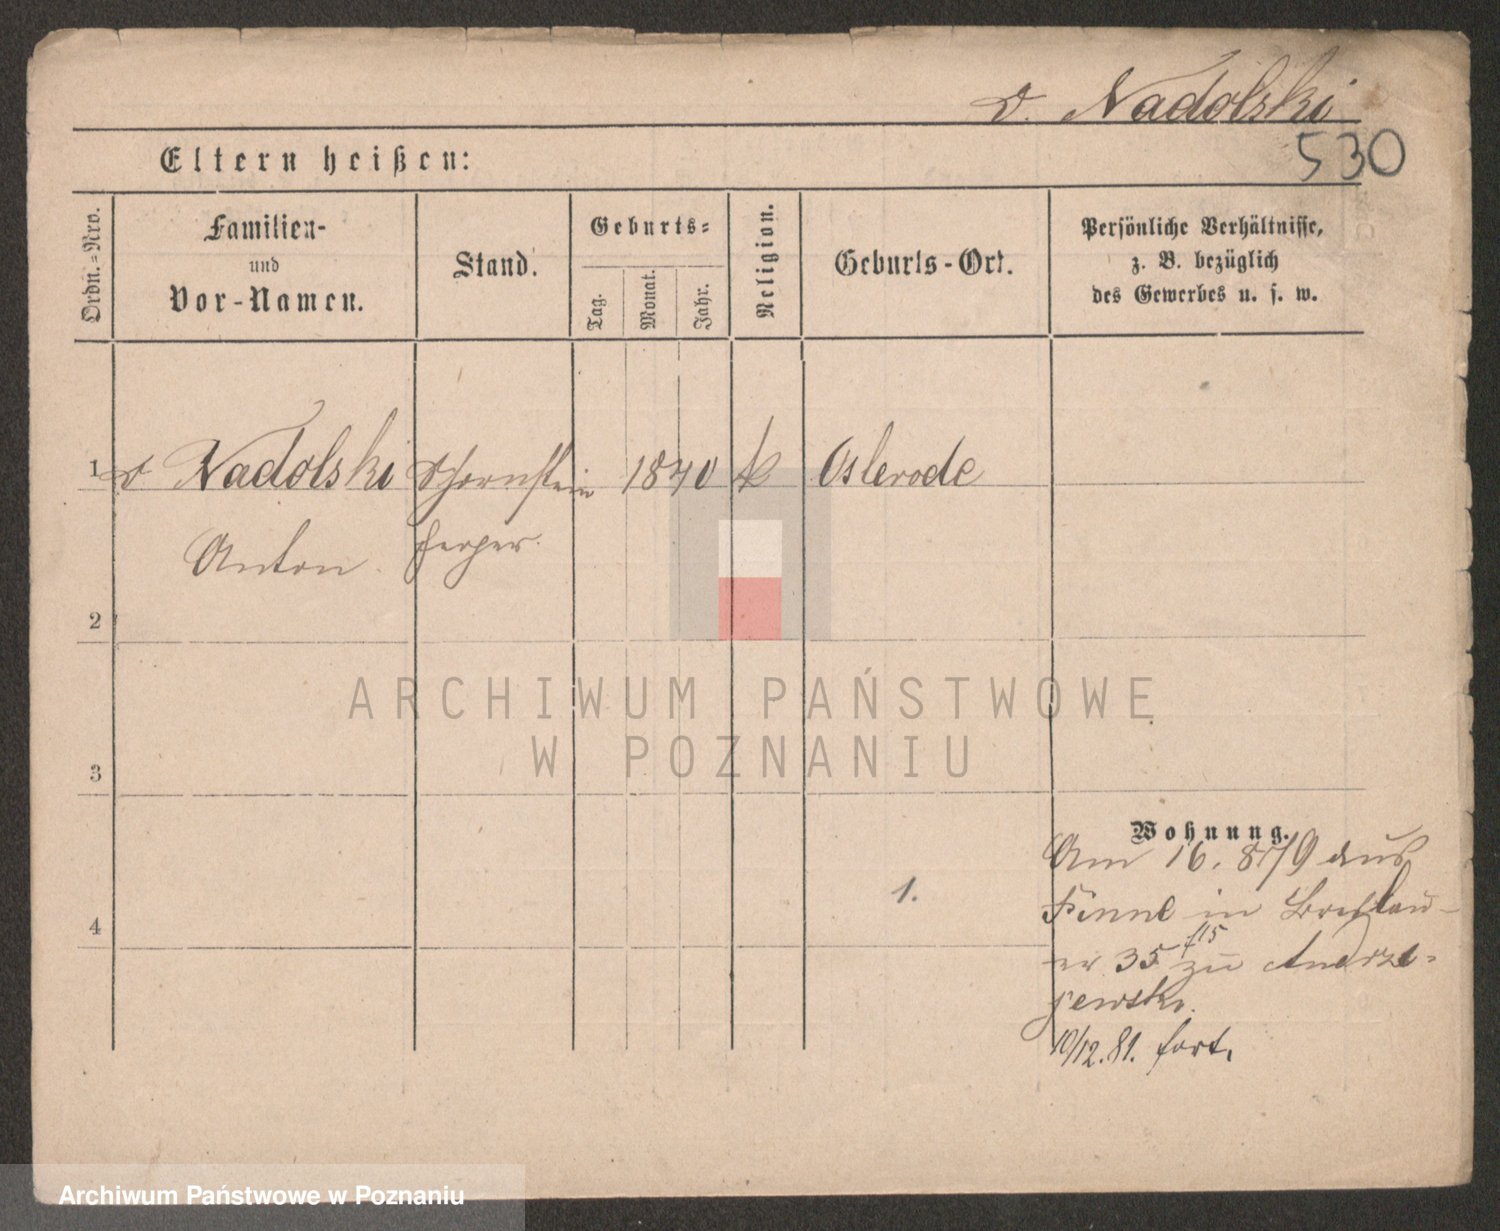 v. Nadolski
530
Eltern heißen:
Ordn.-Nro.
Familien-
und
Vor-Namen.
Stand.
Geburts-
Tag.
Monat.
Jahr.
Religion.
Geburts-Ort.
Persönliche Verhältnisse,
z. B. bezüglich
des Gewerbes u. s. w.
1 v Nadolski Schornstein 1840 k Osterode
Anton. feger.
2
3
4
1.
Wohnung.
Am 16. 8 79 aus
Pinne in Breslau-
er 35 zu Andrze-
jewski.
10/12. 81. fort.
ARCHIWUM PAŃSTWOWE
W POZNANIU
Archiwum Państwowe w Poznaniu